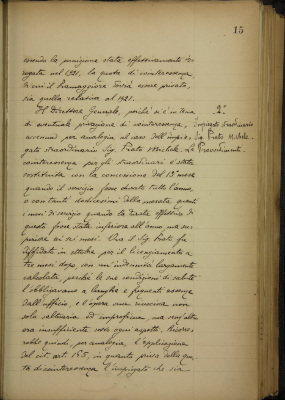 15
essendo la punizione stata effettivamente ir-
rogata nel 1921, la quota di cointeressenza,
di cui il Framaggiore dovrà essere privato,
sia quella relativa al 1921.
Il Direttore Generale, poichè si è in tema
2°
di eventuale privazione di cointeressenza,
Impiegato straordinario
accenna per analogia al caso dell'impie-
Prato Michele.
gato straordinario Sig. Prato Michele. La
Provvedimenti.
cointeressenza per gli straordinari è stata
sostituita con la concessione del 13° mese
quando il servizio fosse durato tutto l'anno,
o con tanti dodicesimi della mesata quanti
i mesi di servizio quando la durata effettiva di
questo fosse stata inferiore all'anno ma su-
periore ai sei mesi. Ora il Sig. Prato fu
diffidato in ottobre per il licenziamento a
tre mesi dopo, con un'indennità largamente
calcolata, perchè le sue condizioni di salute
l'obbligavano a lunghe e frequenti assenze
dall'ufficio, e l'opera sua riusciva non
solo saltuaria ed improficua, ma senz'altro
era insufficiente sotto ogni aspetto.
quindi, per analogia, l'applicazione
del cit. art. 155, in quanto priva della quo-
ta di cointeressenza l'impiegato che sia